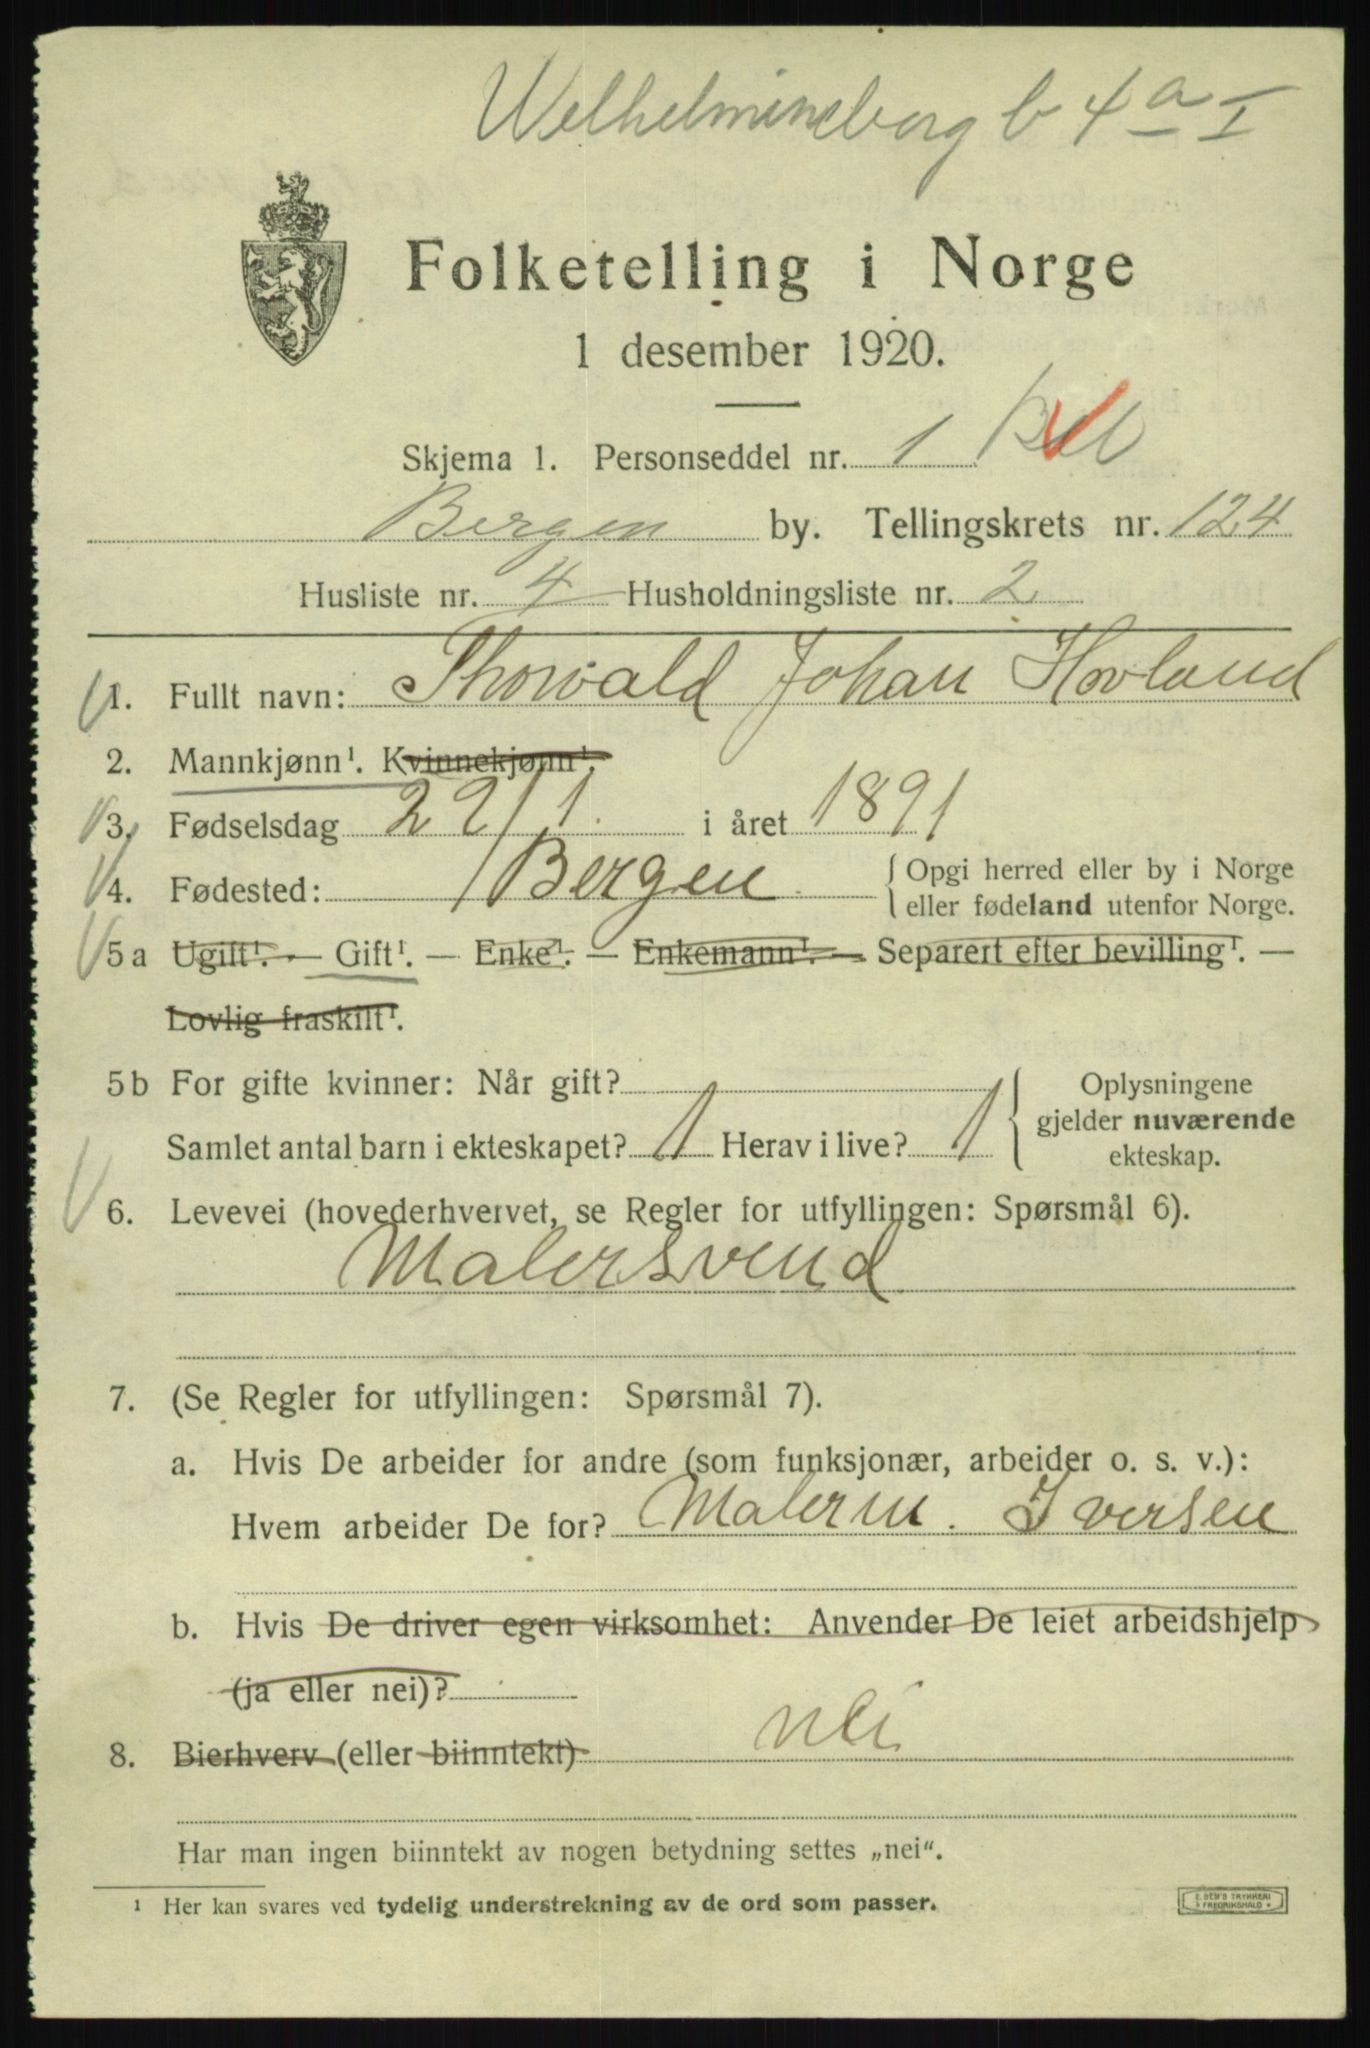 Welhelmineborg b 4 a I
Folketelling i Norge
1 desember 1920.
Skjema 1. Personseddel nr. 1
Bergen by. Tellingskrets nr. 124
Husliste nr. 4 Husholdningsliste nr. 2
1. Fullt navn: Thorvald Johan Hovland
2. Mannkjønn¹. Kvinnekjønn¹.
3. Fødselsdag 29/1. i året 1891
4. Fødested: Bergen {Opgi herred eller by i Norge
eller fødeland utenfor Norge.
5 a Ugift¹. — Gift¹. — Enke¹. — Enkemann¹. — Separert efter bevilling¹. —
Lovlig fraskilt¹.
5 b For gifte kvinner: Når gift?
Samlet antal barn i ekteskapet? 1 Herav i live? 1 { Oplysningene
gjelder nuværende
ekteskap.
6. Levevei (hovederhvervet, se Regler for utfyllingen: Spørsmål 6).
Malersvend
7. (Se Regler for utfyllingen: Spørsmål 7).
a. Hvis De arbeider for andre (som funksjonær, arbeider o. s. v.):
Hvem arbeider De for? Malerm. Iversen
b. Hvis De driver egen virksomhet: Anvender De leiet arbeidshjelp
(ja eller nei)?
8. Bierhverv (eller biinntekt) nei
Har man ingen biinntekt av nogen betydning settes „nei“.
¹ Her kan svares ved tydelig understrekning av de ord som passer.
E. SEM'S TRYKKERI
FREDRIKSHALD